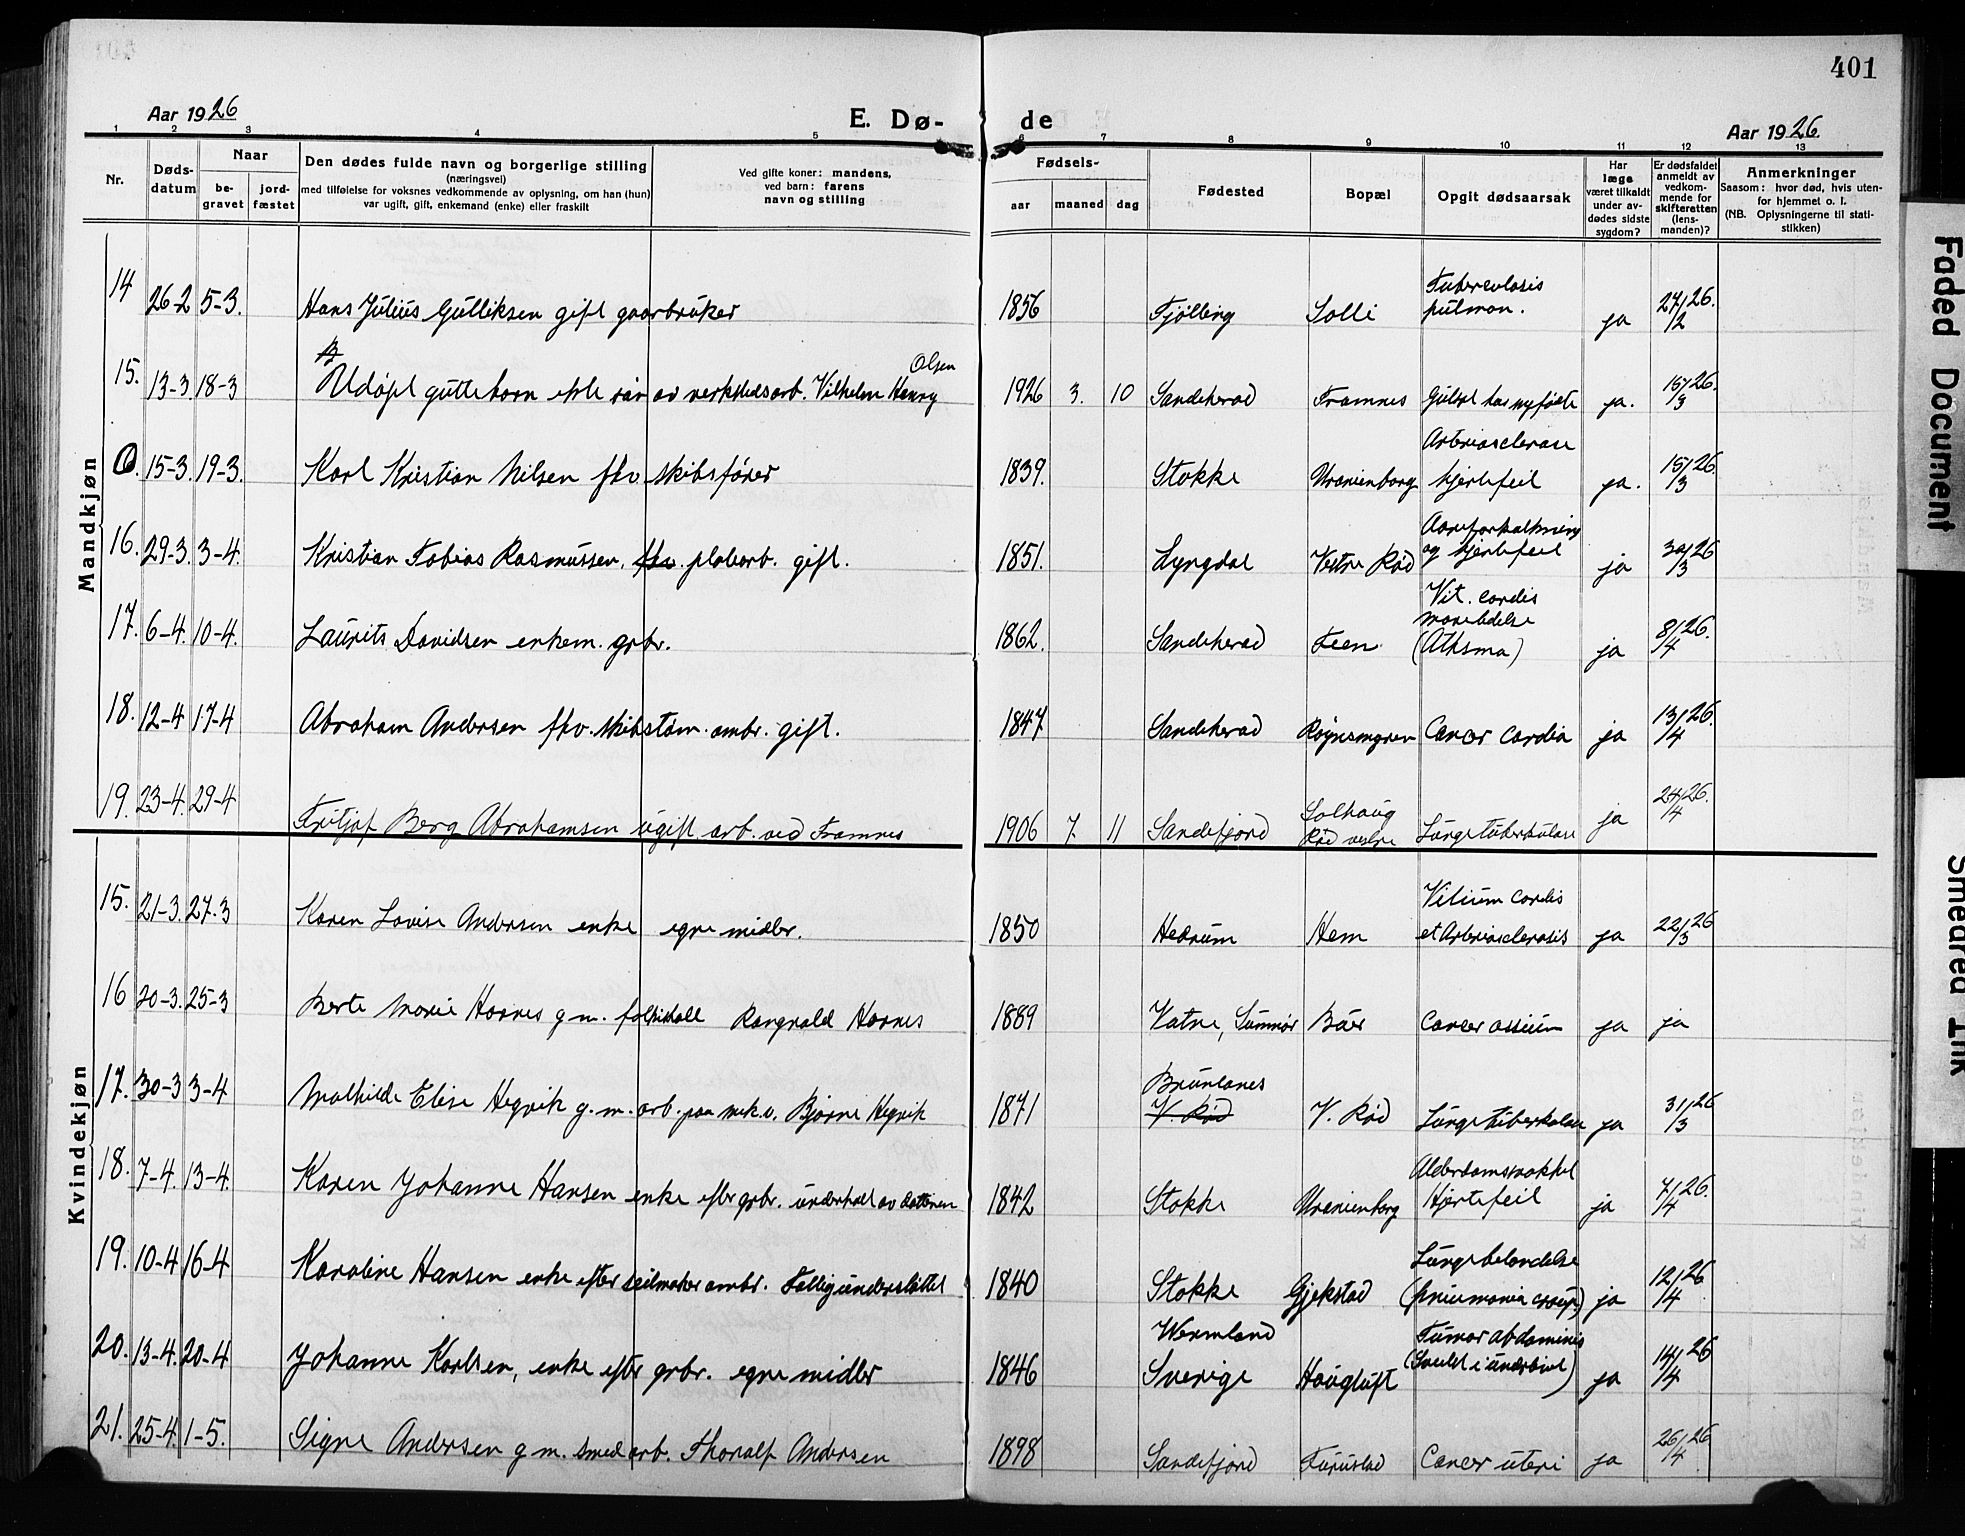 401
Aar 1926
E. Dø-
de
Aar 1926
1 2 3 4 5 6 7 8 9 10 11 12 13
Nr.
Døds-
datum
Naar
be-
gravet
jord-
fæstet
Den dødes fulde navn og borgerlige stilling
(næringsvei)
med tilføielse for voksnes vedkommende av oplysning, om han (hun)
var ugift, gift, enkemand (enke) eller fraskilt
Ved gifte koner: mandens,
ved barn: farens
navn og stilling
Fødsels-
aar
maaned
dag
Fødested
Bopæl
Opgit dødsaarsak
Har
læge
været tilkaldt
under av-
dødes sidste
sygdom?
Er dødsfaldet
anmeldt av
vedkom-
mende for
skifteretten
(lens-
manden)?
Anmerkninger
Saasom: hvor død, hvis uten-
for hjemmet o. l.
(NB. Oplysningerne til stati-
stikken)
Mandkjøn
14 26-2 5-3. Hans Julius Gulliksen gift gaarbruker 1856 Fjølling Solli Tuberculosis pulmon. ja 27/2 26.
15. 13-3 18-3 Udøpt guttebarn ekte søn av verkstedsarb. Vilhelm Henry Olsen 1926 3. 10 Sandeherad Framnes Gulsot hos nyfødte ja. 15/3 26.
0. 15-3. 19-3. Karl Kristian Nilsen fhv. skibsfører 1839. Stokke Uranienborg Arteriosclerose hjertefeil ja. 15/3 26.
16. 29-3. 3-4. Kristian Tobias Rasmussen, fhv. platearb. gift. 1851. Lyngdal Vestre Rød Aareforkalkning og hjertefeil ja 30/3 26
17. 6-4. 10-4. Laurits Davidsen enkem. gbr. 1862. Sandeherad Feen Vit. cordis (Athsma) ja 8/4 26.
18. 12-4 17-4 Abraham Andersen fhv. skibstøm. ombr. gift. 1847. Sandeherad Cancer cardia ja 13/4 26.
19. 23-4. 29-4 Fritjof Berg Abrahamsen ugift arb. ved Framnes 1906 7. 11 Sandefjord Solhaug Rød vestre Lungetuberkulose ja 24/4 26.
Kvindekjøn
15. 21-3. 27.3 Karen Lovise Andersen enke egne midler. 1850 Hedrum Hem Vitium cordis et Arteriosclerosis ja 22/3 26
16 20-3. 25-3 Berte Marie Haanes g. m. Rangvald Haanes 1889 Vatne, Sunmør Buer Cancer ossium ja ja
17. 30-3 3-4 Mathilde Elise Hegvik g. m. arb. paa mek. v. Bjarne Hegvik 1871 Brunlanes V. Rød V. Rød Lungetuberkulose ja 31/3 26
18. 7-4. 13-4. Karen Johanne Hansen enke efter gbr. underholt av datteren 1842 Stokke Uranienborg Alderdomssvakhet Hjertefeil ja 7/4 26.
19. 10-4 16-4 Karoline Hansen enke efter seilmaker ombr. Fattigunderstøttet 1840 Stokke Gjekstad Lungebetændelse (pneumonia croup.) ja 12/4 26
20. 13-4. 20-4 Johanne Karlsen, enke efter gbr. egne midler 1846 Wermland Sverige Haugtuft Tumor abdominis (Svulst i underlivet) ja 14/4 26
21. 25-4. 1-5. Signe Andersen g. m. smed arb. Thoralf Andersen 1898 Sandefjord Furustad Cancer uteri ja 26/4 26
Faded Document
Smeared Ink